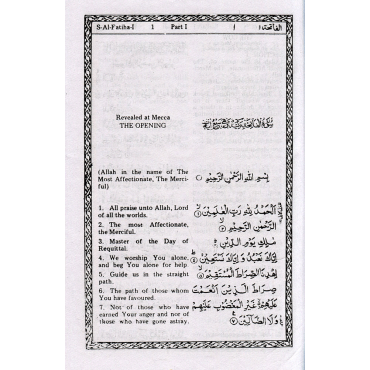 S-Al-Fatiha-I 1 Part I ا الفاتحة
Revealed at Mecca
THE OPENING
(Allah in the name of The
Most Affectionate, The Merci-
ful)
بِسْمِ اللهِ الرَّحْمٰنِ الرَّحِيْمِ
1. All praise unto Allah, Lord
of all the worlds.
2. The most Affectionate,
the Merciful.
3. Master of the Day of
Requittal.
4. We worship You alone,
and beg You alone for help.
5. Guide us in the straight
path.
6. The path of those whom
You have favoured.
7. Not of those who have
earned Your anger and nor of
those who have gone astray.
اَلْحَمْدُ لِلّٰهِ رَبِّ الْعٰلَمِيْنَ ١
الرَّحْمٰنِ الرَّحِيْمِ ٢
مٰلِكِ يَوْمِ الدِّيْنِ ٣
اِيَّاكَ نَعْبُدُ وَ اِيَّاكَ نَسْتَعِيْنُ ٤
اِهْدِنَا الصِّرَاطَ الْمُسْتَقِيْمَ ٥
صِرَاطَ الَّذِيْنَ اَنْعَمْتَ
عَلَيْهِمْ غَيْرِ الْمَغْضُوْبِ عَلَيْهِمْ
وَلَا الضَّآلِّيْنَ ٧